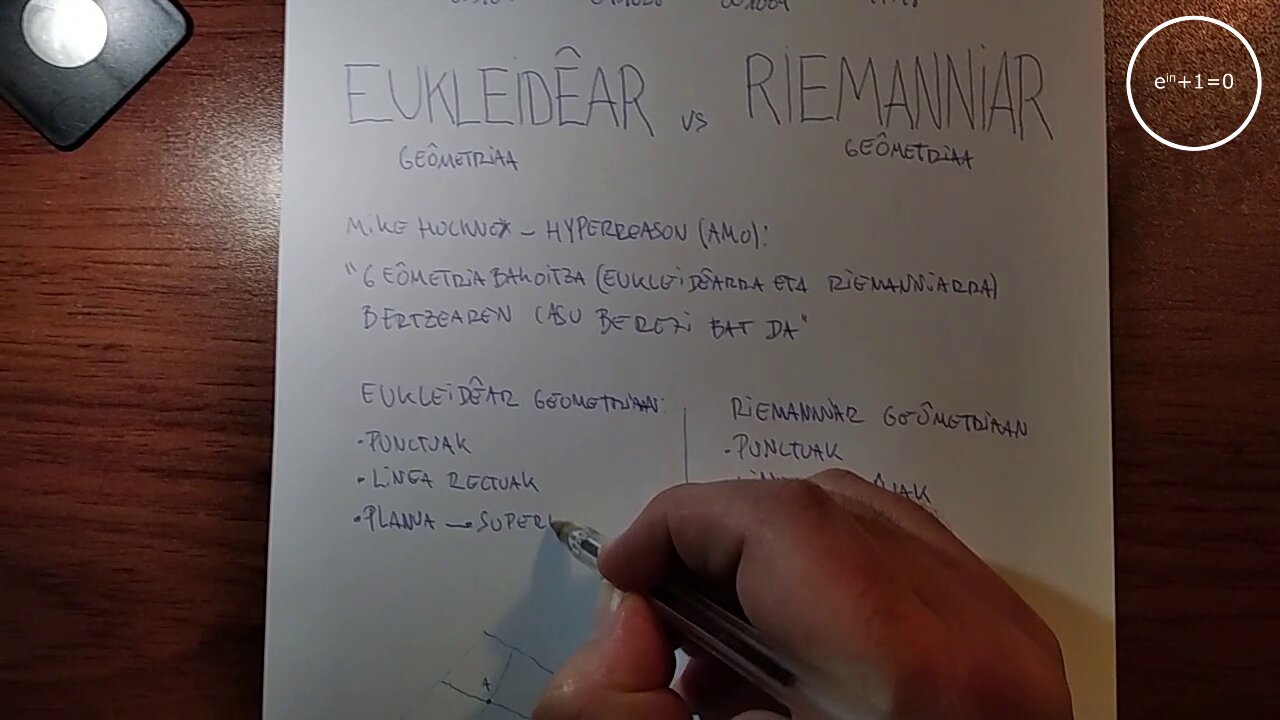 EUKLEIDÊAR vs RIEMANNIAR
GEÔMETRIAA GEÔMETRIAA
e^iπ+1=0
MIKE HOCKNEY - HYPERREASON (AMO):
"GEÔMETRIA BAKOITZA (EUKLEIDÊARRA ETA RIEMANNIARRA)
BERTZEAREN CASU BEREZI BAT DA"
EUKLEIDÊAR GEOMETRIAN:
• PUNCTUAK
• LINEA RECTUAK
• PLANUA → SUPER
RIEMANNIAR GEÔMETRIAAN
• PUNCTUAK
A